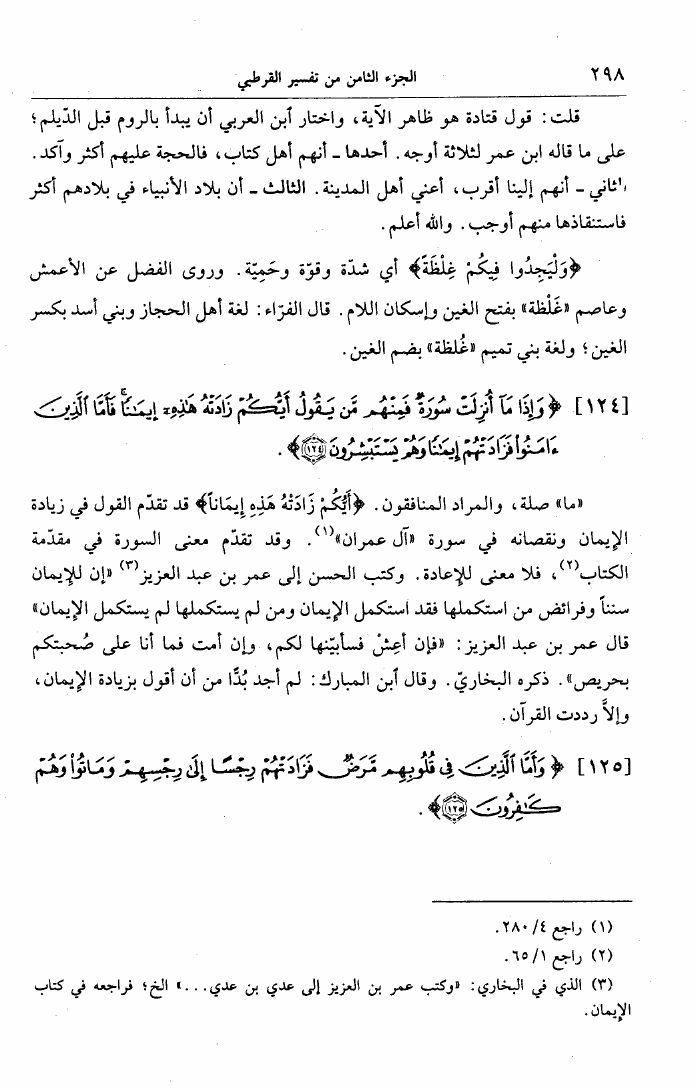 ٢٩٨ الجزء الثامن من تفسير القرطبي
قلت: قول قتادة هو ظاهر الآية، واختار ٱبن العربي أن يبدأ بالروم قبل الدّيلم؛
على ما قاله ابن عمر لثلاثة أوجه. أحدها ـ أنهم أهل كتاب، فالحجة عليهم أكثر وآكد.
الثاني ـ أنهم إلينا أقرب، أعني أهل المدينة. الثالث ـ أن بلاد الأنبياء في بلادهم أكثر
فاستنقاذها منهم أوجب. والله أعلم.
﴿وَلْيَجِدُوا فِيكُمْ غِلْظَةً﴾ أي شدّة وقوّة وحَمِيّة. وروى الفضل عن الأعمش
وعاصم «غَلْظة» بفتح الغين وإسكان اللام. قال الفرّاء: لغة أهل الحجاز وبني أسد بكسر
الغين؛ ولغة بني تميم «غُلظة» بضم الغين.
[١٢٤] ﴿وَإِذَا مَآ أُنزِلَتْ سُورَةٌ فَمِنْهُم مَّن يَقُولُ أَيُّكُمْ زَادَتْهُ هَٰذِهِۦٓ إِيمَٰنًا ۚ فَأَمَّا ٱلَّذِينَ
ءَامَنُوا۟ فَزَادَتْهُمْ إِيمَٰنًا وَهُمْ يَسْتَبْشِرُونَ ١٢٤﴾.
«ما» صلة، والمراد المنافقون. ﴿أَيُّكُمْ زَادَتْهُ هَذِهِ إِيمَاناً﴾ قد تقدّم القول في زيادة
الإيمان ونقصانه في سورة «آل عمران»(١). وقد تقدّم معنى السورة في مقدّمة
الكتاب(٢)، فلا معنى للإعادة. وكتب الحسن إلى عمر بن عبد العزيز(٣) «إن للإيمان
سنناً وفرائض من استكملها فقد استكمل الإيمان ومن لم يستكملها لم يستكمل الإيمان»
قال عمر بن عبد العزيز: «فإن أعِشْ فسأبيّنها لكم، وإن أمت فما أنا على صُحبتكم
بحريص». ذكره البخاريّ. وقال ٱبن المبارك: لم أجد بُدًّا من أن أقول بزيادة الإيمان،
وإلاَّ رددت القرآن.
[١٢٥] ﴿وَأَمَّا ٱلَّذِينَ فِى قُلُوبِهِم مَّرَضٌ فَزَادَتْهُمْ رِجْسًا إِلَىٰ رِجْسِهِمْ وَمَاتُوا۟ وَهُمْ
كَٰفِرُونَ ١٢٥﴾.
(١) راجع ٤/ ٢٨٠.
(٢) راجع ١/ ٦٥.
(٣) الذي في البخاري: «وكتب عمر بن العزيز إلى عدي بن عدي...» الخ؛ فراجعه في كتاب
الإيمان.